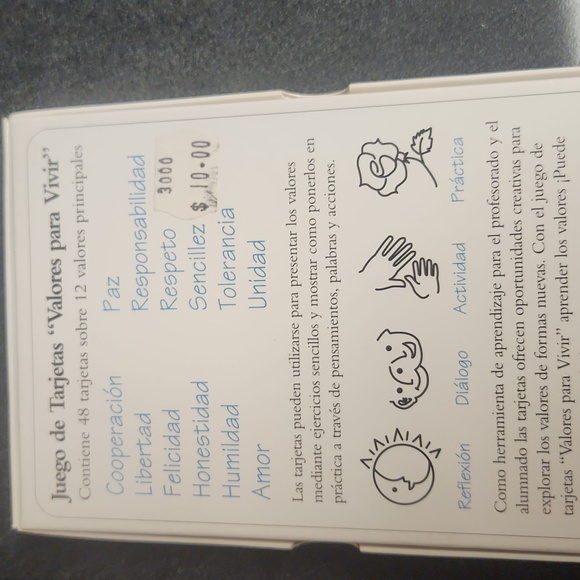 Juego de Tarjetas “Valores para Vivir”
Contiene 48 tarjetas sobre 12 valores principales
Cooperación
Libertad
Felicidad
Honestidad
Humildad
Amor
Paz
Responsabilidad
Respeto
Sencillez
Tolerancia
Unidad
3000
$ 10.00
Las tarjetas pueden utilizarse para presentar los valores
mediante ejercicios sencillos y mostrar como ponerlos en
práctica a través de pensamientos, palabras y acciones.
Reflexión Diálogo Actividad Práctica
Como herramienta de aprendizaje para el profesorado y el
alumnado las tarjetas ofrecen oportunidades creativas para
explorar los valores de formas nuevas. Con el juego de
tarjetas “Valores para Vivir” aprender los valores ¡Puede